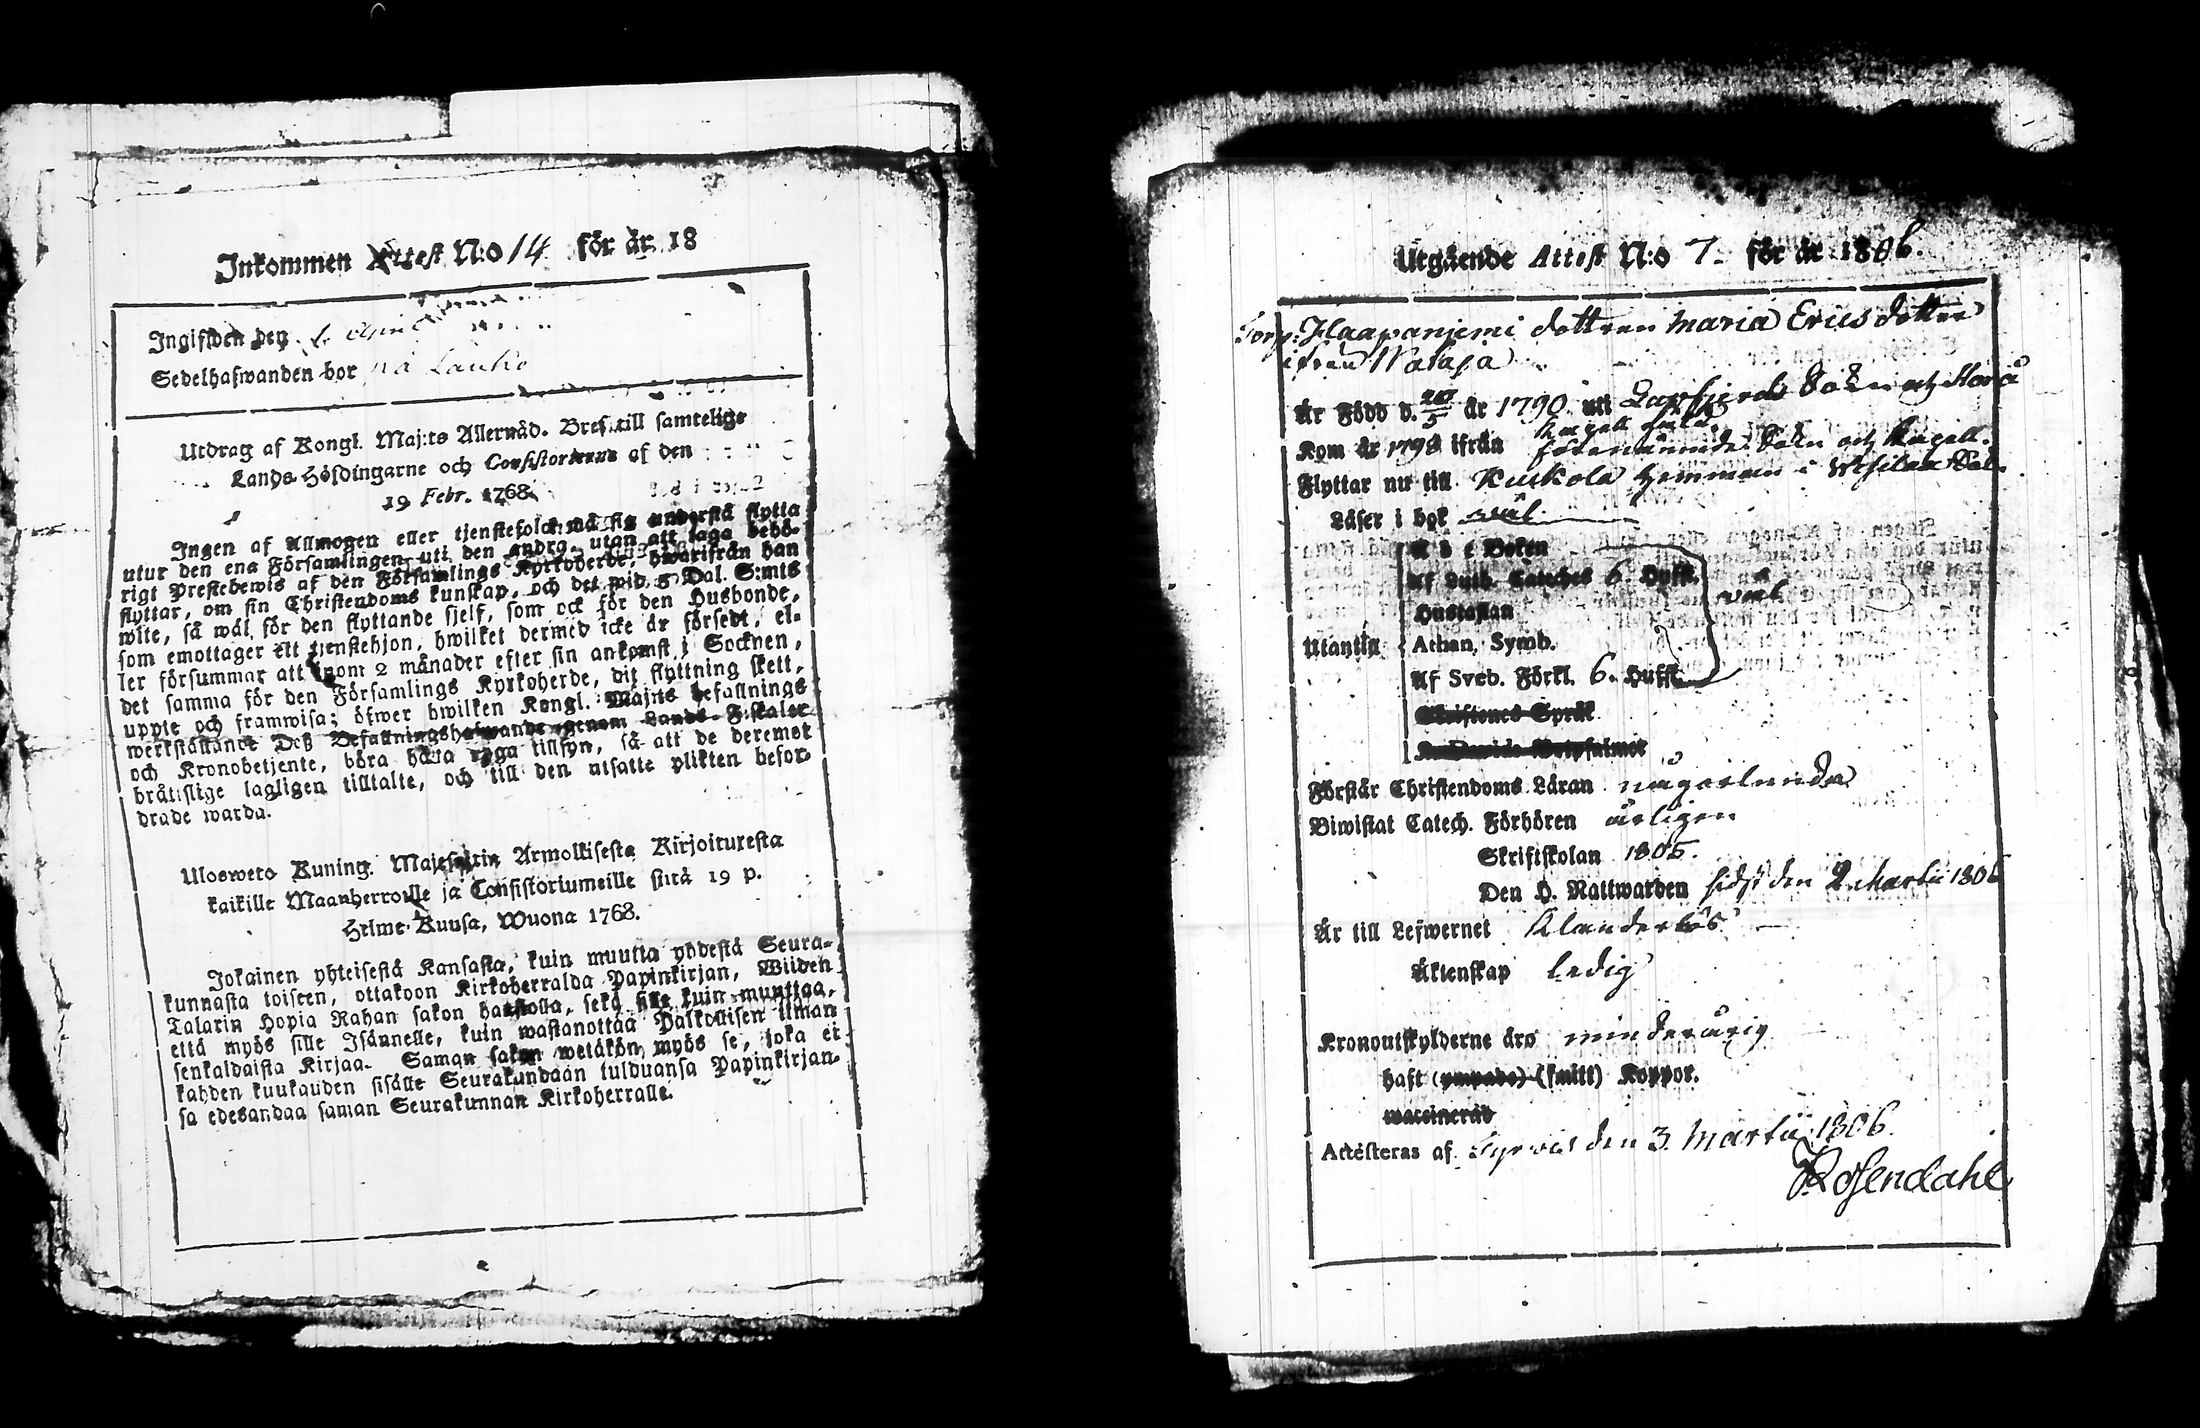 Inkommen Attest N:o 14 för år 18
Ingifwen den
Sedelhafwanden bor på Lauko
Utdrag af Kongl. Maj:ts Allernåd. Bref till samtelige
Lands-Höfdingarne och Consistorierne af den
19 Febr. 1768.
Ingen af Allmogen eller tjenstefolck må sig understå flytta
utur den ena Församlingen uti den andra, utan att taga behö-
rigt Prestebewis af den Församlings Kyrkoherde, hwarifrån han
flyttar, om sin Christendoms kunskap, och det wid 5 Dal. S:mts
wite, så wäl för den flyttande sjelf, som ock för den Husbonde,
som emottager ett tjenstehjon, hwilket dermed icke är försedt, el-
ler försummar att inom 2 månader efter sin ankomst i Socknen,
det samma för den Församlings Kyrkoherde, dit flyttning skett,
uppte och framwisa; öfwer hwilken Kongl. Maj:ts befallnings
werkställande Deß Befallningshafwande genom Lands-Fiskaler
och Kronobetjente, böra hålla noga tillsyn, så att de deremot
bråtislige lagligen tilltalte, och till den utsatte plikten befor-
drade warda.
Ulosweto Kuning. Majestetin Armollisesta Kirjoituxesta
kaikille Maanherroille ja Consistoriumeille siitä 19 p.
Helme-Kuusa, Wuona 1768.
Jokainen yhteisestä Kansasta, kuin muutta yhdestä Seura-
kunnasta toiseen, ottakoon Kirkoherralda Papinkirjan, Wiiden
Talarin Hopia Rahan sakon haastolla, sekä sille kuin muuttaa,
että myös sille Isännelle, kuin wastanottaa Palkollisen ilman
senkaldaista Kirjaa. Saman sakon wetäkön myös se, joka ei
kahden kuukauden sisälle Seurakundaan tulduansa Papinkirjan-
sa edesandaa saman Seurakunnan Kirkoherralle.
Utgående Attest N:o 7. för år 1806.
Torp: Haapanjemi dottren Maria Ericsdotter
ifrån
Är Född d. 20/5 år 1790 uti Lappfjerds Sokn och Storå
Kapell
Kom år 1798 ifrån förenämnde Sokn och Kapell.
Flyttar nu till Kuskola Hemman i Wesilax Sok.
Läser i bok wäl
A b c Boken
Af Luth. Cateches 6. Hufst.
wäl
Hustaflan
Utantill Athan, Symb.
Af Sveb. Förkl. 6. Hufst.
Skriftenes Språk
Förstår Christendoms Läran någorlunda
Biwistat Catech. Förhören årligen
Skriftskolan 1805.
Den H. Nattwarden sidst den 2 Martii 1806
Är till Lefwernet Klanderlös
Äktenskap ledig
Kronoutskylderne äro minderårig
haft (ympade) (smitt) Koppor.
waccinerad
Attesteras af Tyrvis den 3 Martii 1806.
Rosendahl